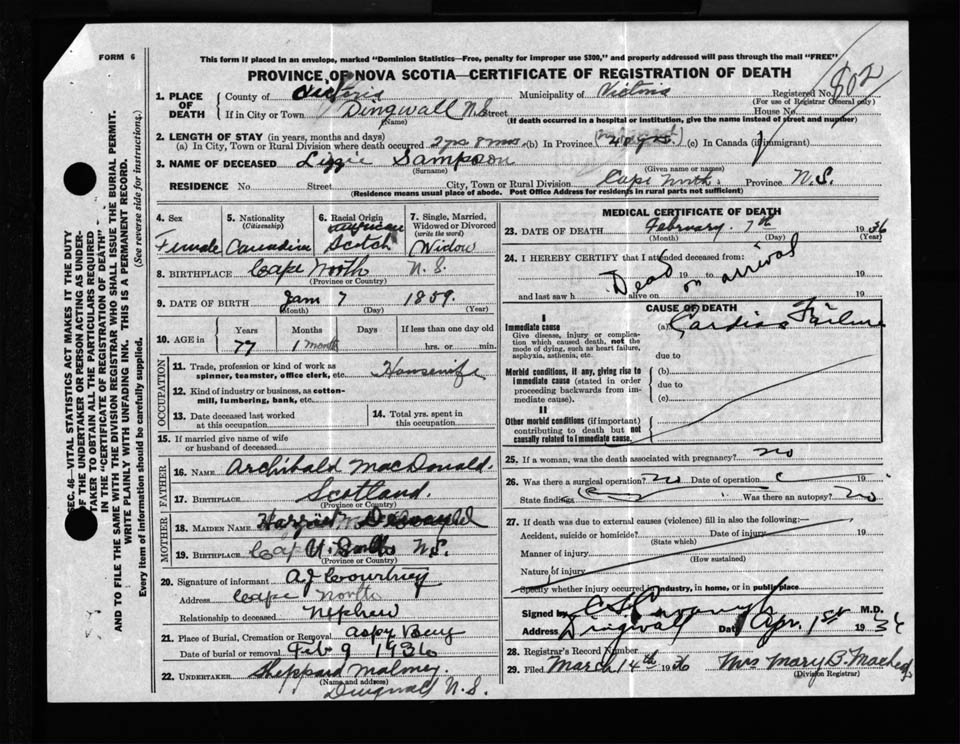 FORM 6
This form if placed in an envelope, marked "Dominion Statistics—Free, penalty for improper use $300," and properly addressed will pass through the mail "FREE"
PROVINCE OF NOVA SCOTIA—CERTIFICATE OF REGISTRATION OF DEATH
802
1. PLACE OF DEATH
County of Victoria Municipality of Victoria Registered No.
(For use of Registrar General only)
If in City or Town Dingwall N.S. Street House No.
(Name) (If death occurred in a hospital or institution, give the name instead of street and number)
2. LENGTH OF STAY (in years, months and days)
(a) In City, Town or Rural Division where death occurred 2 yrs 8 mos. (b) In Province (c) In Canada (if immigrant)
3. NAME OF DECEASED Lizzie Sampson
(Surname) (Given name or names)
RESIDENCE No. Street City, Town or Rural Division Cape North. Province N.S.
(Residence means usual place of abode. Post Office Address for residents in rural parts not sufficient)
4. Sex
Female
5. Nationality
(Citizenship)
Canadian
6. Racial Origin
Scotch
7. Single, Married, Widowed or Divorced
(write the word)
Widow
8. BIRTHPLACE Cape North N.S.
(Province or Country)
9. DATE OF BIRTH Jan 7 1859.
(Month) (Day) (Year)
10. AGE in
Years Months Days If less than one day old
77 1 month hrs. or min.
OCCUPATION
11. Trade, profession or kind of work as spinner, teamster, office clerk, etc. Housewife
12. Kind of industry or business, as cotton-mill, lumbering, bank, etc.
13. Date deceased last worked at this occupation
14. Total yrs. spent in this occupation
15. If married give name of wife or husband of deceased
FATHER
16. NAME Archibald MacDonald.
17. BIRTHPLACE Scotland.
(Province or Country)
MOTHER
18. MAIDEN NAME Harriet
19. BIRTHPLACE N.S.
(Province or Country)
20. Signature of informant A J Courtney
Address Cape North
Relationship to deceased Nephew
21. Place of Burial, Cremation or Removal Aspy Bay
Date of burial or removal Feb 9 1936
22. UNDERTAKER Sheppard Maloney
(Name and address)
Dingwall N.S.
MEDICAL CERTIFICATE OF DEATH
23. DATE OF DEATH February 7th 1936
(Month) (Day) (Year)
24. I HEREBY CERTIFY that I attended deceased from:
Dead on arrival
19 to 19
and last saw h alive on 19
CAUSE OF DEATH
I
Immediate cause
Give disease, injury or complication which caused death, not the mode of dying, such as heart failure, asphyxia, asthenia, etc.
(a) Cardiac Failure
due to
Morbid conditions, if any, giving rise to immediate cause (stated in order proceeding backwards from immediate cause).
(b)
due to
(c)
II
Other morbid conditions (if important) contributing to death but not causally related to immediate cause.
25. If a woman, was the death associated with pregnancy? no
26. Was there a surgical operation? no Date of operation 19
State findings Was there an autopsy? no
27. If death was due to external causes (violence) fill in also the following:—
Accident, suicide or homicide? Date of injury 19
(State which)
Manner of injury
(How sustained)
Nature of injury
Specify whether injury occurred in industry, in home, or in public place
Signed by M.D.
Address Dingwall Date Apr. 1st 19
28. Registrar's Record Number
29. Filed March 14th 1936 Mrs Mary B.
(Division Registrar)
SEC. 46—VITAL STATISTICS ACT MAKES IT THE DUTY
OF THE UNDERTAKER OR PERSON ACTING AS UNDER-
TAKER TO OBTAIN ALL THE PARTICULARS REQUIRED
IN THE "CERTIFICATE OF REGISTRATION OF DEATH"
AND TO FILE THE SAME WITH THE DIVISION REGISTRAR WHO SHALL ISSUE THE BURIAL PERMIT.
WRITE PLAINLY WITH UNFADING INK. THIS IS A PERMANENT RECORD.
Every item of information should be carefully supplied. (See reverse side for instructions.)